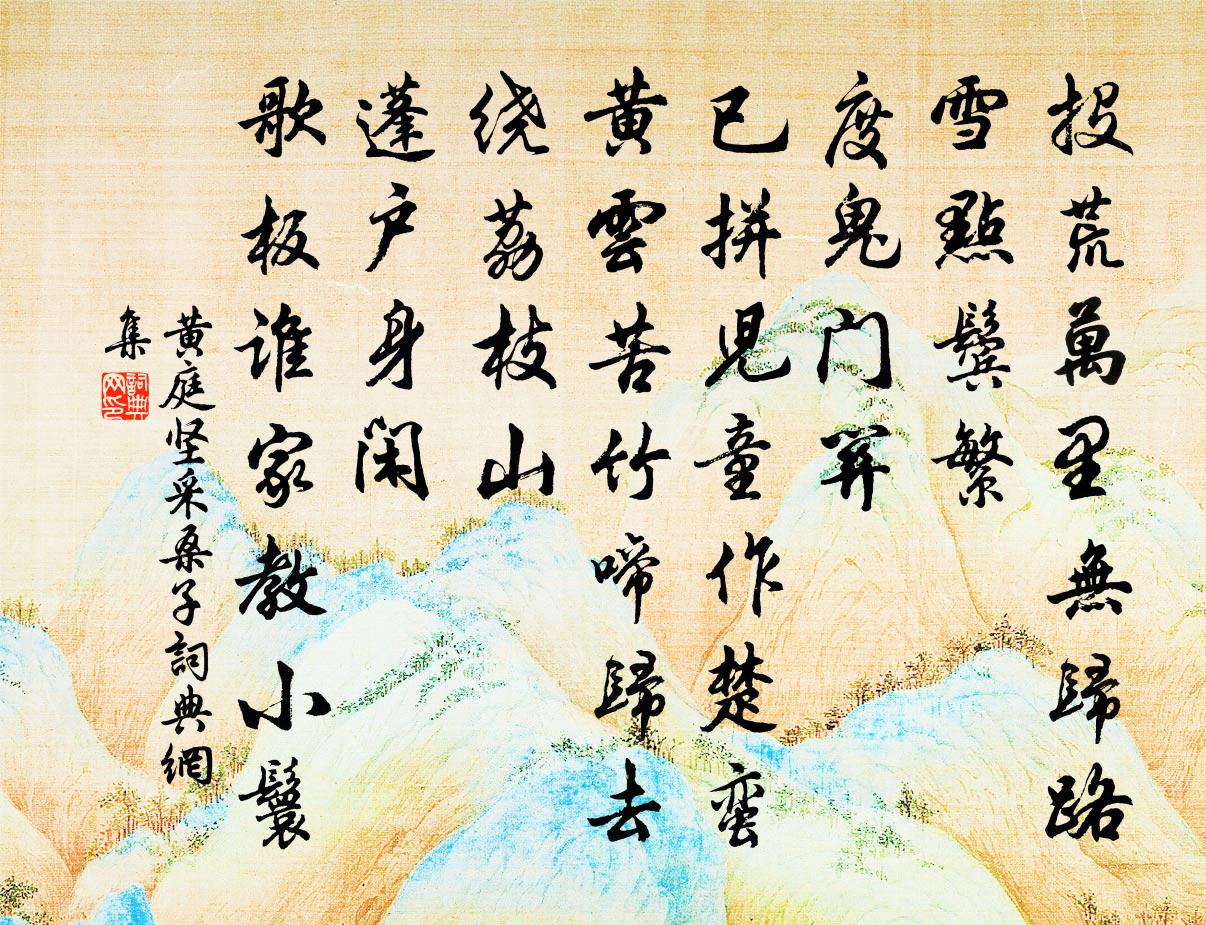 投荒萬里無歸路
雪點鬢繁
度鬼门关
已拼兒童作楚蛮
黄雲苦竹啼歸去
绕荔枝山
蓬户身闲
歌板谁家教小鬟
黄庭坚采桑子詞典網
集
詞典网印